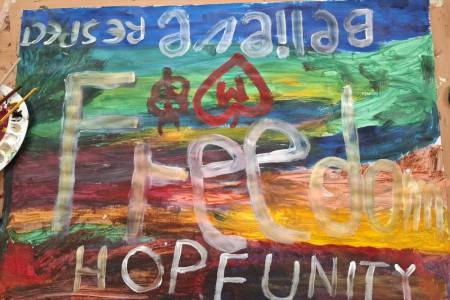 Believe RESPECT
Freedom
HOPE UNITY